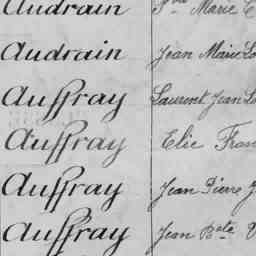 Audrain Marie
Audrain Jean Marie
Auffray Laurent Jean
Auffray Elie Fran
Auffray Jean Pierre
Auffray Jean Bte